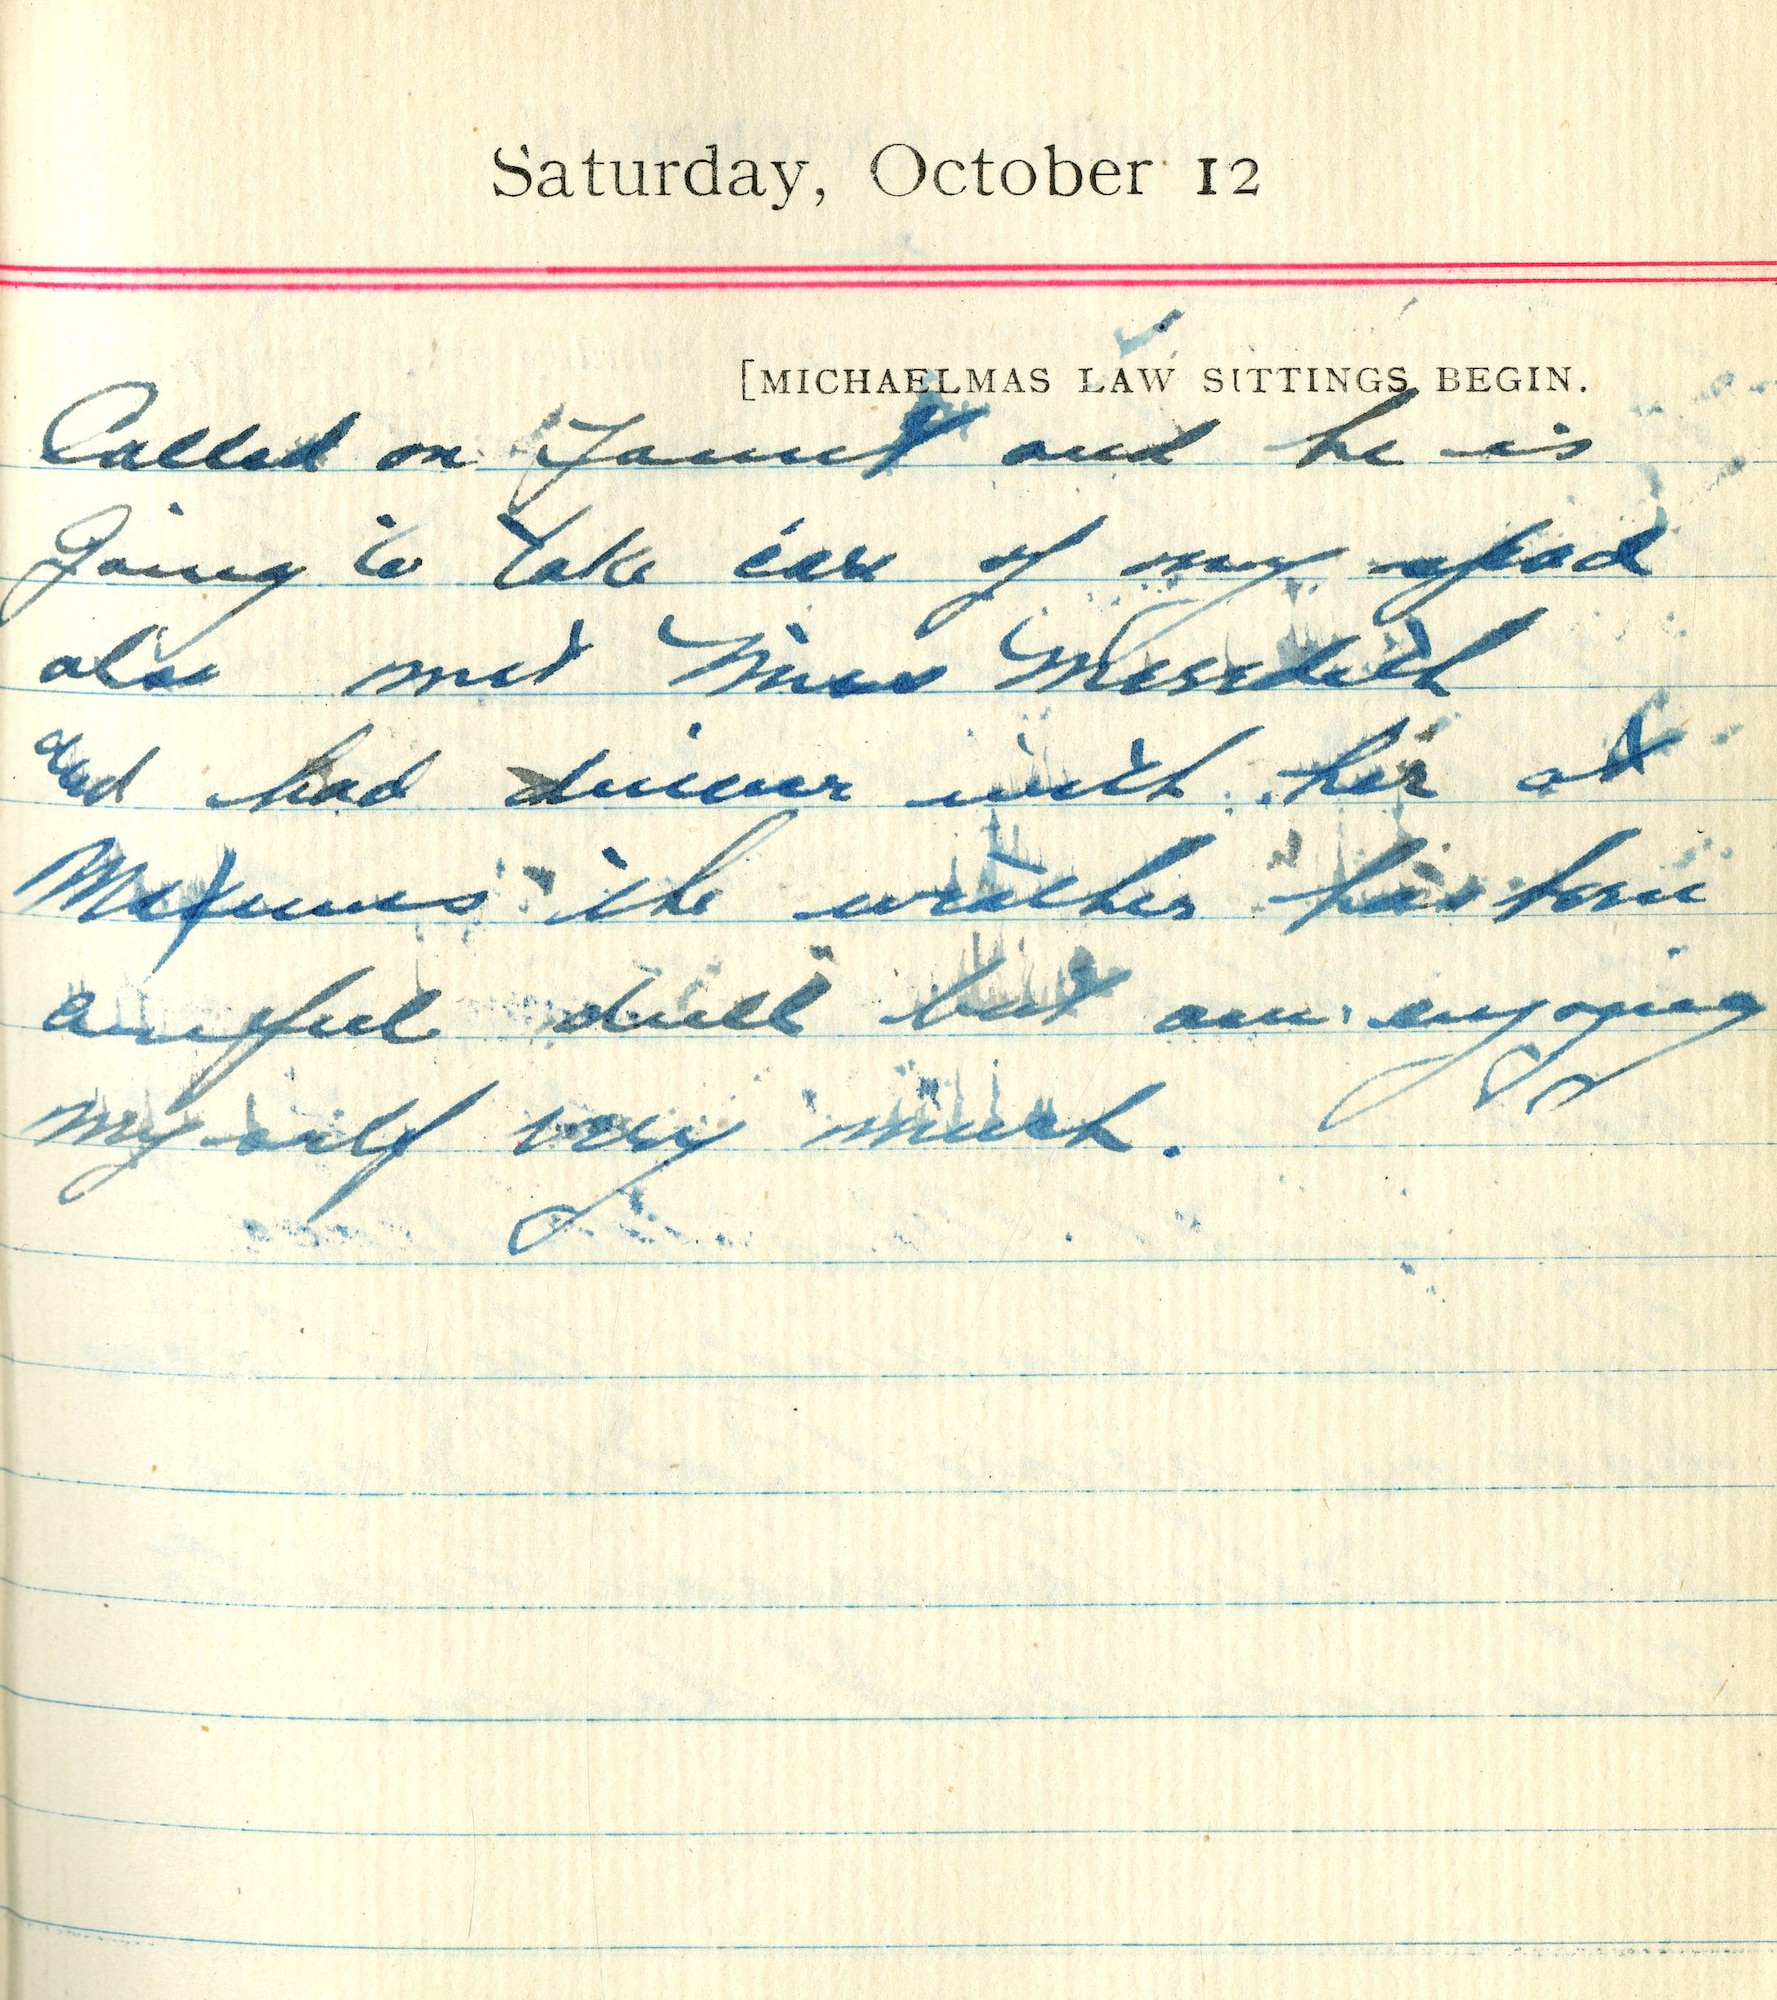 Saturday, October 12
[MICHAELMAS LAW SITTINGS BEGIN.
Called on and he is
Going to take care of my spad
also met Miss Meredith
and had dinner with her at
the weather has been
awful dull but am enjoying
my self very much.